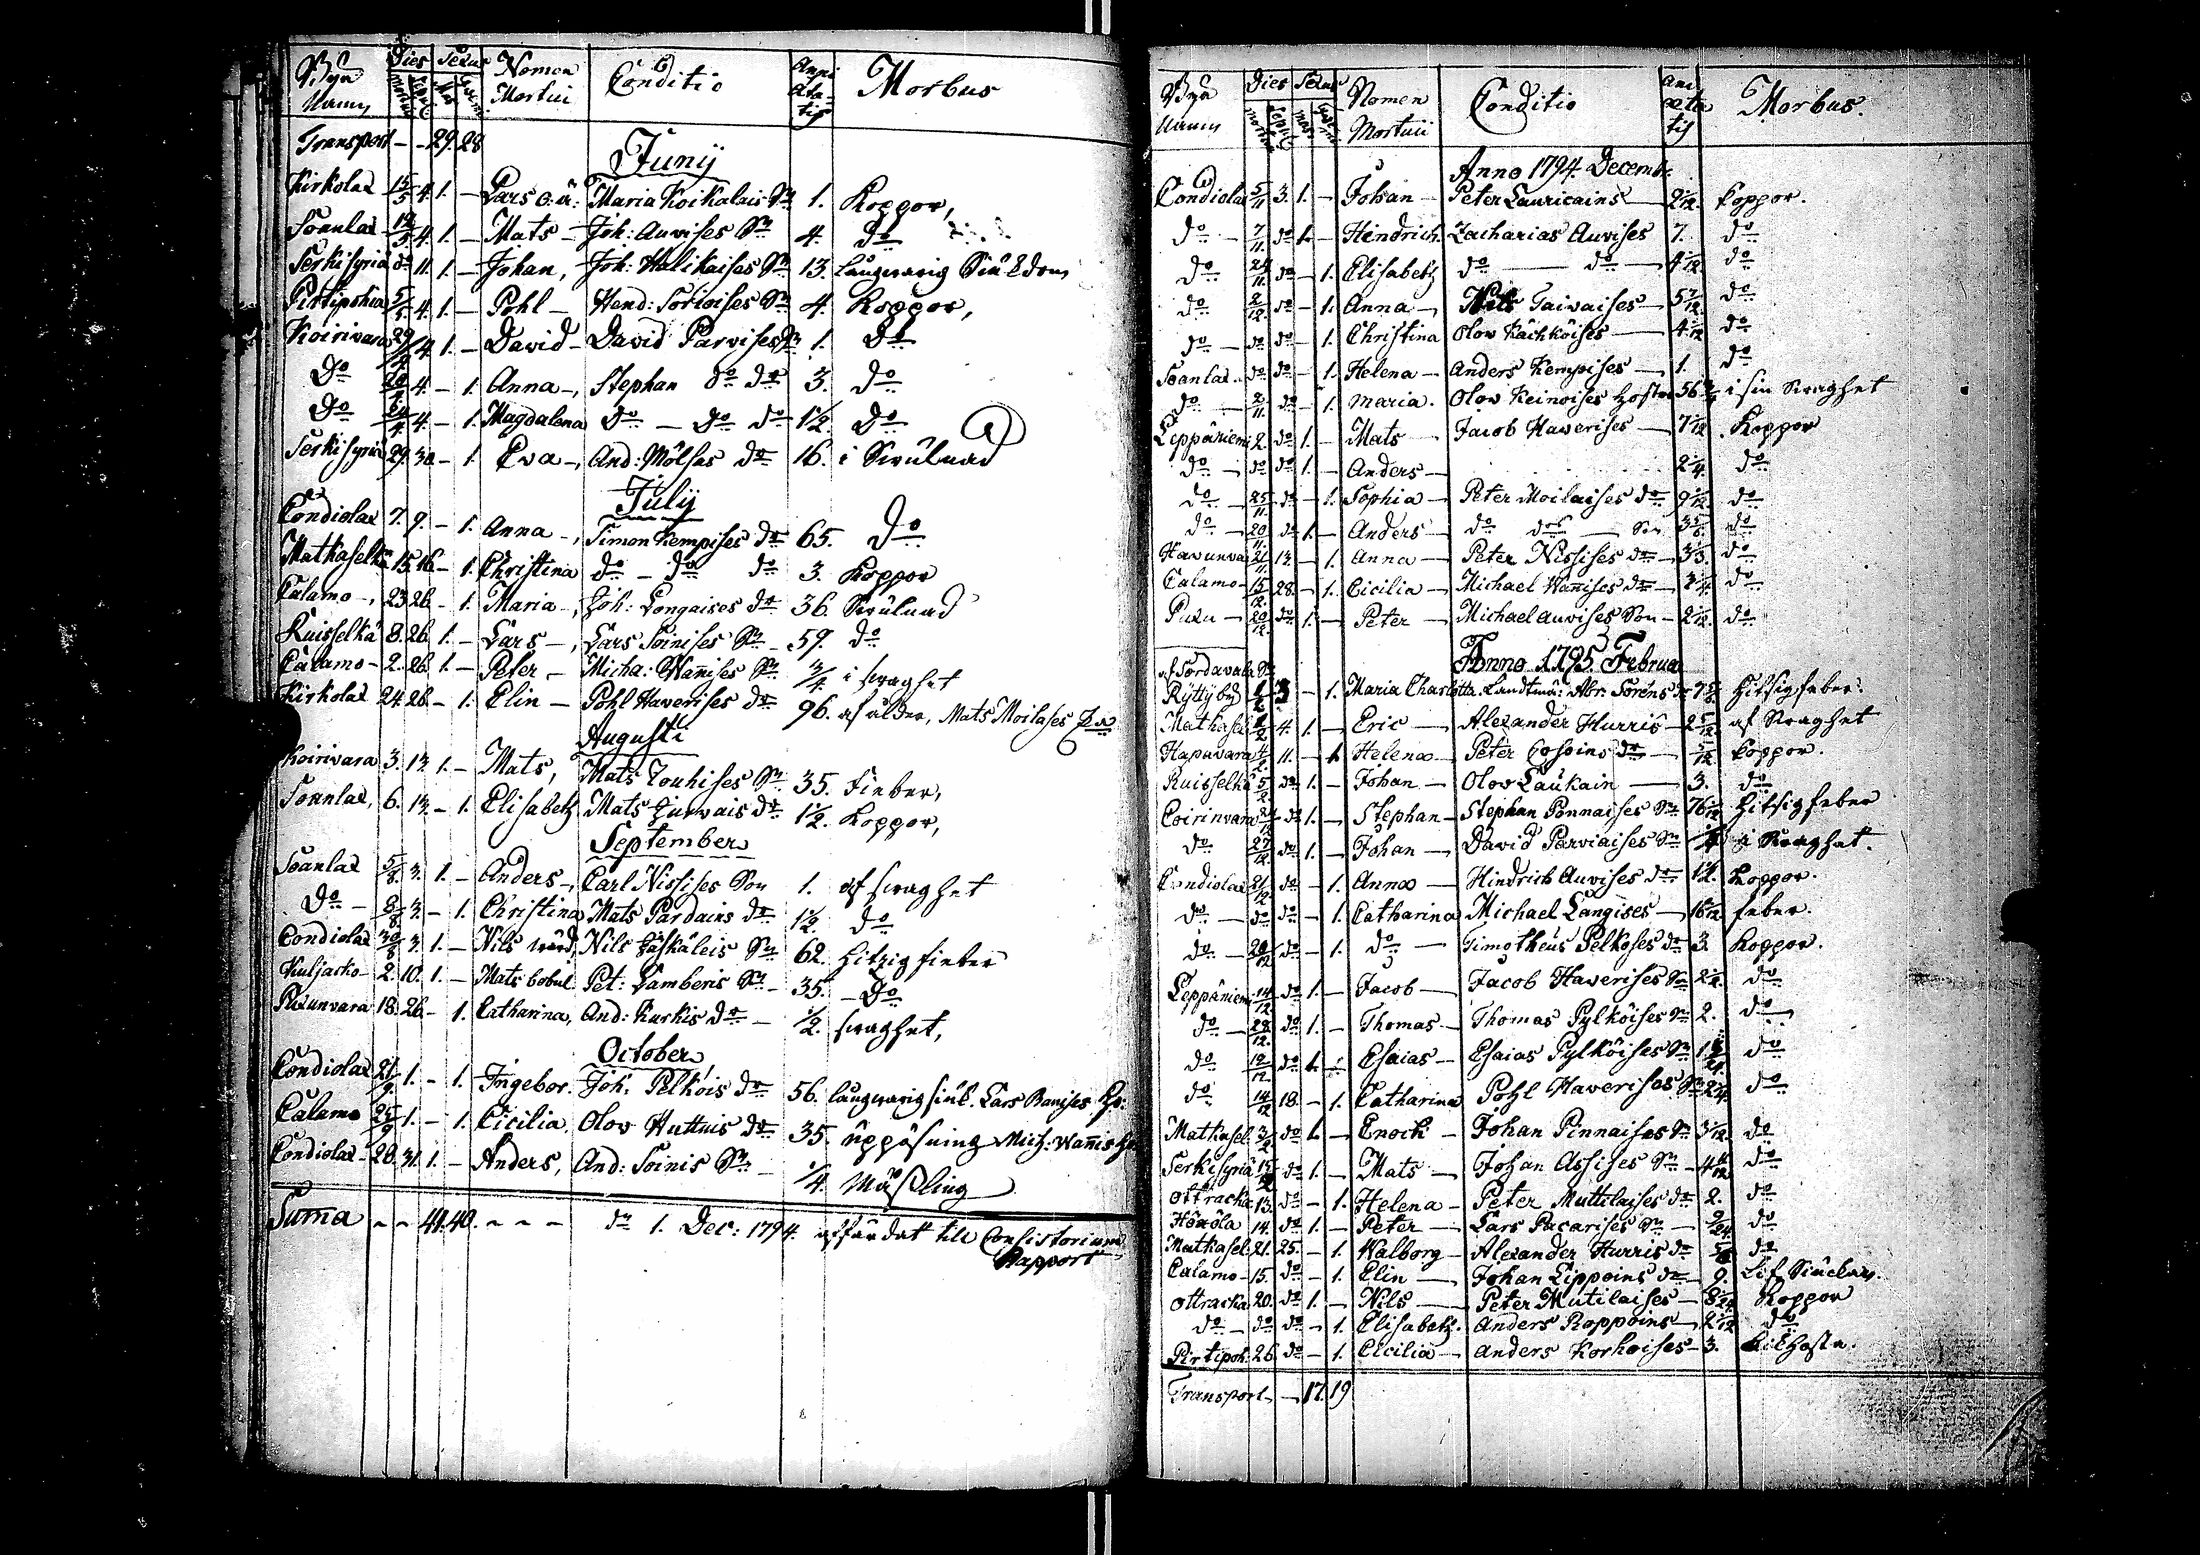 Byn Namn Dies Sexus Nomen Mortui Conditio Anni Ætatis Morbus
Transport - - 29. 28
Junij
Kirkolax 15/5 4. 1. - Lars o.ä: Maria Koikalais Sn 1. Koppor,
Soanlax 4. 1. - Mats - Joh: Auvises Sn 4. do
Serkisyriä do 11. 1. - Johan, Joh: Halikaises Sn 13. långvarig Siukdom
Pirtipohia 5/5 4. 1. - Pohl - Hend: Sorioises Sn 4. Koppor,
Koirivara 29 4. 1. - David - David Parvises Sn 1. do
Do 4. - 1. Anna -, Stephan do do 3. do
Do 24/4 4. - 1. Magdalena do - do do 1/2. do
Serkisyriä 29. 30 - 1. Eva -, And: Mölsas do 16. i
July
Condiolax 7. 9. - 1. Anna -, Simon Kempises do 65. do
Matkaselkä 15. 16. - 1. Christina do - do do 3. Koppor
Calamo -, 23 26. - 1. Maria -, Joh: Longaises do 36.
Ruisselkä 8. 26. 1. - Lars -, Lars Soinises Sn 59. do
Calamo - 2. 26. 1. - Peter - Micha: Wanises Sn 3/4. i svaghet
Kirkolax 24. 26. - 1. Elin - Pohl Haverises do 96. af ålder, Mats Moilases
Augusti
Koirivara 3. 13. 1. - Mats, Mats Touhises Sn 35. Fieber,
Soanlax, 6. 13. - 1. Elisabeth Mats Hurvais do 1 1/2. Koppor,
September
Soanlax 5/8 3. 1. - Anders -, Carl Nissises Son 1. af svaghet
Do - 8/8 3. - 1. Christina, Mats Pardains do 1 1/2. do
Condiolax 30/8 3. 1. - Nils Nils Jäskäleis Sn 62. Hitzig fieber
Kuljacko - 2. 10. 1. - Mats Pet: Lamberis Sn - 35. - Do
Puxunvara 18. 26. - 1. Catharina, And: Kurkis do - 1/2. svaghet,
October
Condiolax 21/9 1. - 1. Ingebor. Joh: Pelkois do 56. långvarig siuk. Lars Hu:
Calamo 25/9 1. - 1. Cicilia. Olov Huttuis do 35. uppåsning Mich: Wanis Hu
Condiolax - 28. 31. 1. - Anders, And: Soinis Sn - 1/4. Mäßling
Suma - - 41. 40. - - - dn 1. Dec: 1794. affärdat till Consistorium
Rapport
Byn Namn Dies Sexus Nomen Mortui Conditio Anni ætatis Morbus.
Anno 1794 Decemb:
Condiolax 5/11 3. 1. - Johan - Peter Lauricains - 2/12. Koppor.
do - 7/11 do 1. - Hindrich Zacharias Auvises 7. do
do - 24/11 do - 1. Elisabeth do - do - 4/12 do
do 2/12 do - 1. Anna - Taivaises - 5 7/12 do
do - do do - 1. Christina Olov Kächköises - 4/12 do
Soanlax do do - 1. Helena - Anders Kempises - 1. do
do - 2/11 do - 1. Maria. Olov Keinoises Hustru 56 i sin svaghet
Leppäniemi 2. do 1. - Mats - Jacob Haverises - 7/12. Koppor
do - do do 1. - Anders - 2/4. do
do - 25/11 do - 1. Sophia - Peter Moilaises do 9/12 do
do - 20/11 do 1. - Anders - do do - Son 3 do
Havunvar 21/11 13. - 1. Anna - Peter Nissises do - 3 do
Calamo - 15/12 28. - 1. Cicilia - Michael Wanises do - 3/4. do
Puxu - 20/12 do 1. - Peter - Michael Auvises Son - 2/12. do
Anno 1795 Februa
af Sordavala Sn
Ryttyby - 1. Maria Charlotta. Landtmä: Abr: Soréns do 7 Hitsig feber.
Matkasel 4. 1. - Eric - Alexander Hurris - 2 5/12 af svaghet
Hapavara 4/2 11. - 1. Helena - Peter Cosoins do - Koppor.
Ruisselkä 5/2 do 1. - Johan - Olov Laukain - 3. do
Coirinvara do 1. - Stephan - Stephan Ponnaises Sn 76 Hitsig feber
do 27/12 do 1. - Johan - David Parviaises Sn i svaghet.
Condiolax 21/12 do - 1. Anna - Hindrich Auvises do 1 1/2. Koppor.
do - do do - 1. Catharina Michael Langises - 16 feber.
do - 28/12 do - 1. do - Timotheus Pelkoses do 3. Koppor.
Leppäniem 14/12 do 1. - Jacob - Jacob Haverises Sn 2 do
do - 28/12 do 1. - Thomas - Thomas Pylköises Sn 2. do
do 12/12 do 1. Esaias - Esaias Pylköises Sn 1. do
do 14/12 18. - 1. Catharina Pohl Haverises do
Matkasel. 3/2 do 1. - Enock - Johan Pinnaises Sn 3/12. do
Serkisyriä 15/2 do 1. - Mats - Johan Assises Sn - 4 do
Ottracka 13. do - 1. Helena - Peter Muttilaises do 2. do
Hömöla 14. do 1. - Peter - Lars Pacarises Sn - 9/24. do
Matkasel. 21. 25. - 1. Walborg - Alexander Hurris do do
Calamo - 15. do - 1. Elin - Johan Lippoins do - 9.
Ottracka 20. do 1. - Nils - Peter Mutilaises - 8/24. Koppor
do - do do - 1. Elisabeth. Anders Roppoins - 2/12 do
Pirtipoh: 26. do - 1. Cicilia - Anders Korhoises - 3. Kikhosta.
Transport - 17. 19